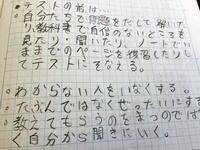 ●テストの前は…
○自分たちで問題をだして解いた
り教科書で自信のないところを
見たり・聞いたり、ノートでい
ままでのページを復習したりし
てテストにそなえる。
○わからない人をいなくする。
○たぶんではなくぜったいにする
○教えてもらうのをまつのではな
く自分から聞きにいく。